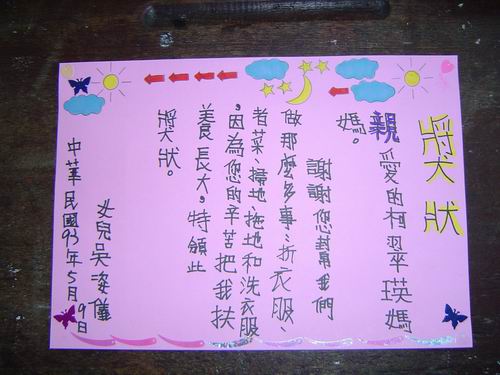 獎狀
親愛的柯翠瑛媽
媽。
謝謝您幫我們
做那麼多事:折衣服、
煮菜、掃地、拖地和洗衣服
,因為您的辛苦把我扶
養長大,特頒此
獎狀。
女兒吳姿儀
中華民國93年5月9日